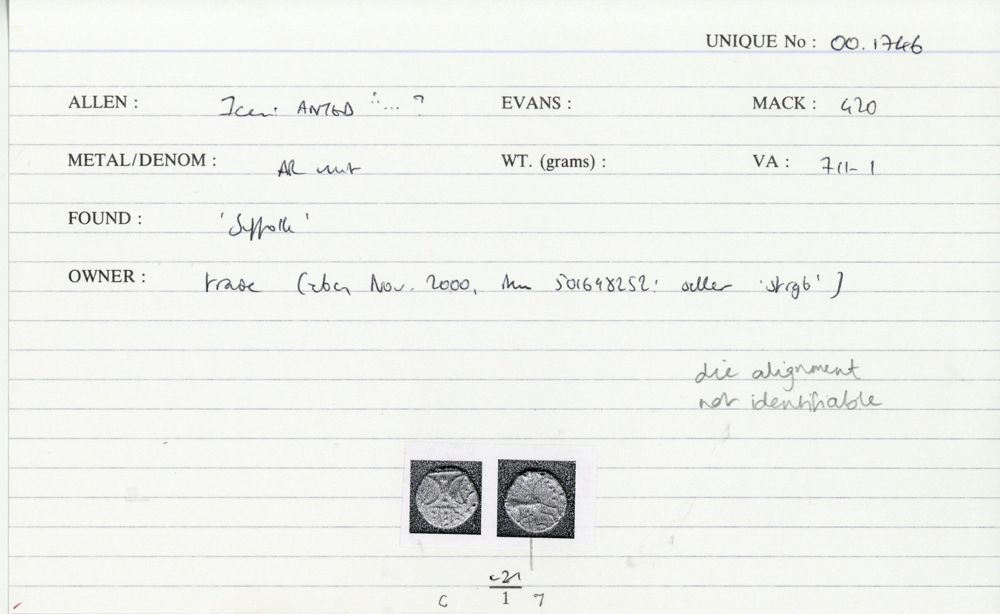 UNIQUE No : 00.1746
ALLEN : Iceni ANTED ∴... ? EVANS : MACK : 420
METAL/DENOM : AR unit WT. (grams) : VA : 711-1
FOUND : 'Suffolk'
OWNER : trade (ebay Nov. 2000, 501648252: seller 'strgb')
die alignment
not identifiable
C 1 7